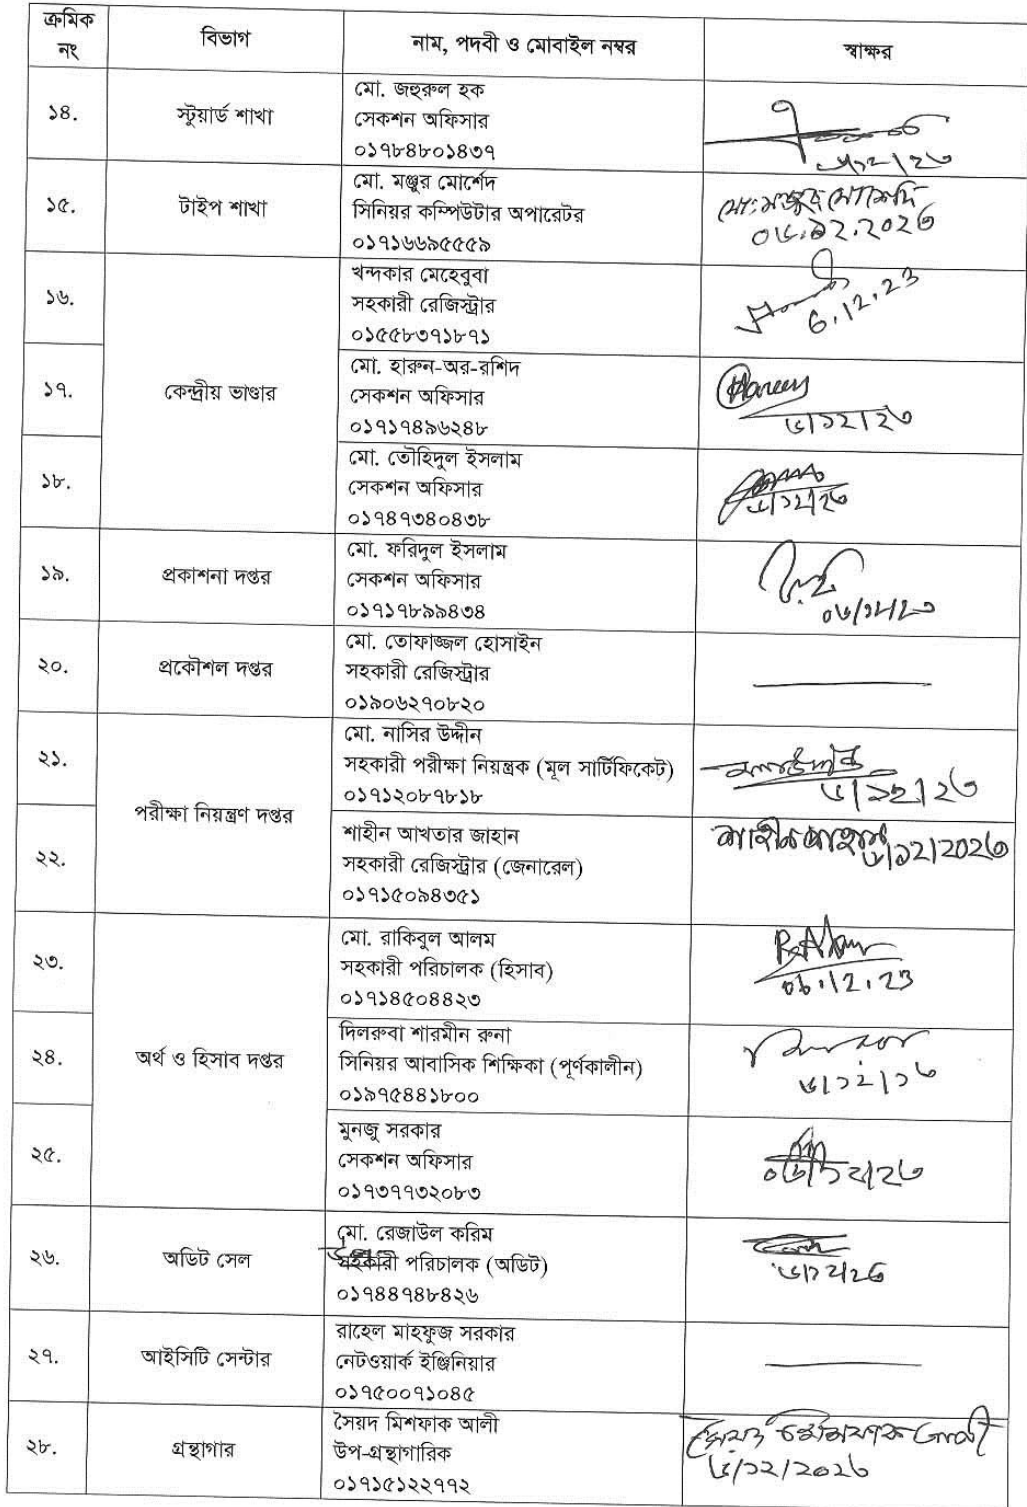 ক্রমিক নং
বিভাগ
নাম, পদবী ও মোবাইল নম্বর
স্বাক্ষর
১৪.
স্টুয়ার্ড শাখা
মো. জহুরুল হক
সেকশন অফিসার
০১৭৮৪৮০১৪৩৭
৬/১২/২৩
১৫.
টাইপ শাখা
মো. মঞ্জুর মোর্শেদ
সিনিয়র কম্পিউটার অপারেটর
০১৭১৬৬৯৫৫৫৯
মো: মঞ্জুর মোর্শেদ
০৬.১২.২০২৩
১৬.
কেন্দ্রীয় ভাণ্ডার
খন্দকার মেহেবুবা
সহকারী রেজিস্ট্রার
০১৫৫৮৩৭১৮৭১
6.12.23
১৭.
মো. হারুন-অর-রশিদ
সেকশন অফিসার
০১৭১৭৪৯৬২৪৮
৬/১২/২৩
১৮.
মো. তৌহিদুল ইসলাম
সেকশন অফিসার
০১৭৪৭৩৪০৪৩৮
৬/১২/২৩
১৯.
প্রকাশনা দপ্তর
মো. ফরিদুল ইসলাম
সেকশন অফিসার
০১৭১৭৮৯৯৪৩৪
০৬/১২/২৩
২০.
প্রকৌশল দপ্তর
মো. তোফাজ্জল হোসাইন
সহকারী রেজিস্ট্রার
০১৯০৬২৭০৮২০
২১.
পরীক্ষা নিয়ন্ত্রণ দপ্তর
মো. নাসির উদ্দীন
সহকারী পরীক্ষা নিয়ন্ত্রক (মূল সার্টিফিকেট)
০১৭১২০৮৭৮১৮
৬/১২/২৩
২২.
শাহীন আখতার জাহান
সহকারী রেজিস্ট্রার (জেনারেল)
০১৭১৫০৯৪৩৫১
৬/১২/২০২৩
২৩.
অর্থ ও হিসাব দপ্তর
মো. রাকিবুল আলম
সহকারী পরিচালক (হিসাব)
০১৭১৪৫০৪৪২৩
06.12.23
২৪.
দিলরুবা শারমীন রুনা
সিনিয়র আবাসিক শিক্ষিকা (পূর্ণকালীন)
০১৯৭৫৪৪১৮০০
২৫.
মুনজু সরকার
সেকশন অফিসার
০১৭৩৭৭৩২০৮৩
০৬/১২/২৩
২৬.
অডিট সেল
মো. রেজাউল করিম
উপ
সহকারী পরিচালক (অডিট)
০১৭৪৪৭৪৮৪২৬
৬/১২/২৩
২৭.
আইসিটি সেন্টার
রাহেল মাহফুজ সরকার
নেটওয়ার্ক ইঞ্জিনিয়ার
০১৭৫০০৭১০৪৫
২৮.
গ্রন্থাগার
সৈয়দ মিশফাক আলী
উপ-গ্রন্থাগারিক
০১৭১৫১২২৭৭২
৬/১২/২০২৩